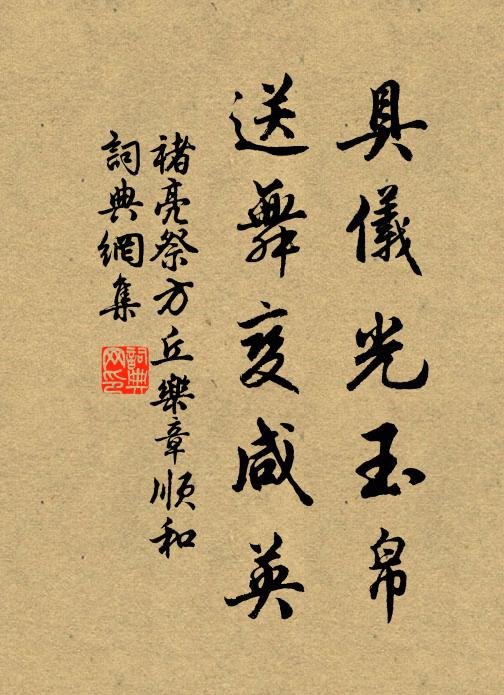 具儀光玉帛
送舞變咸英
褚亮祭方丘樂章順和
詞典網集
詞典
网印